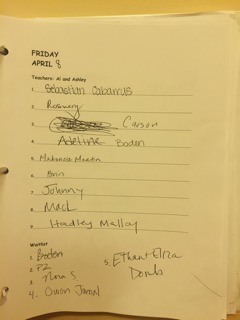 FRIDAY
APRIL 8
Teachers: Al and Ashley
1. Sebastian Cabarrus
2. Rosemary
3. Carson
4. Adeline Boden
5. Makenzie Martin
6. Brin
7. Johnny
8. Mack
9. Hadley Malloy
Waitlist
1. Boden
2. PZ
3. Nina S.
4. Owen Jamal
5. Ethan + Eliza